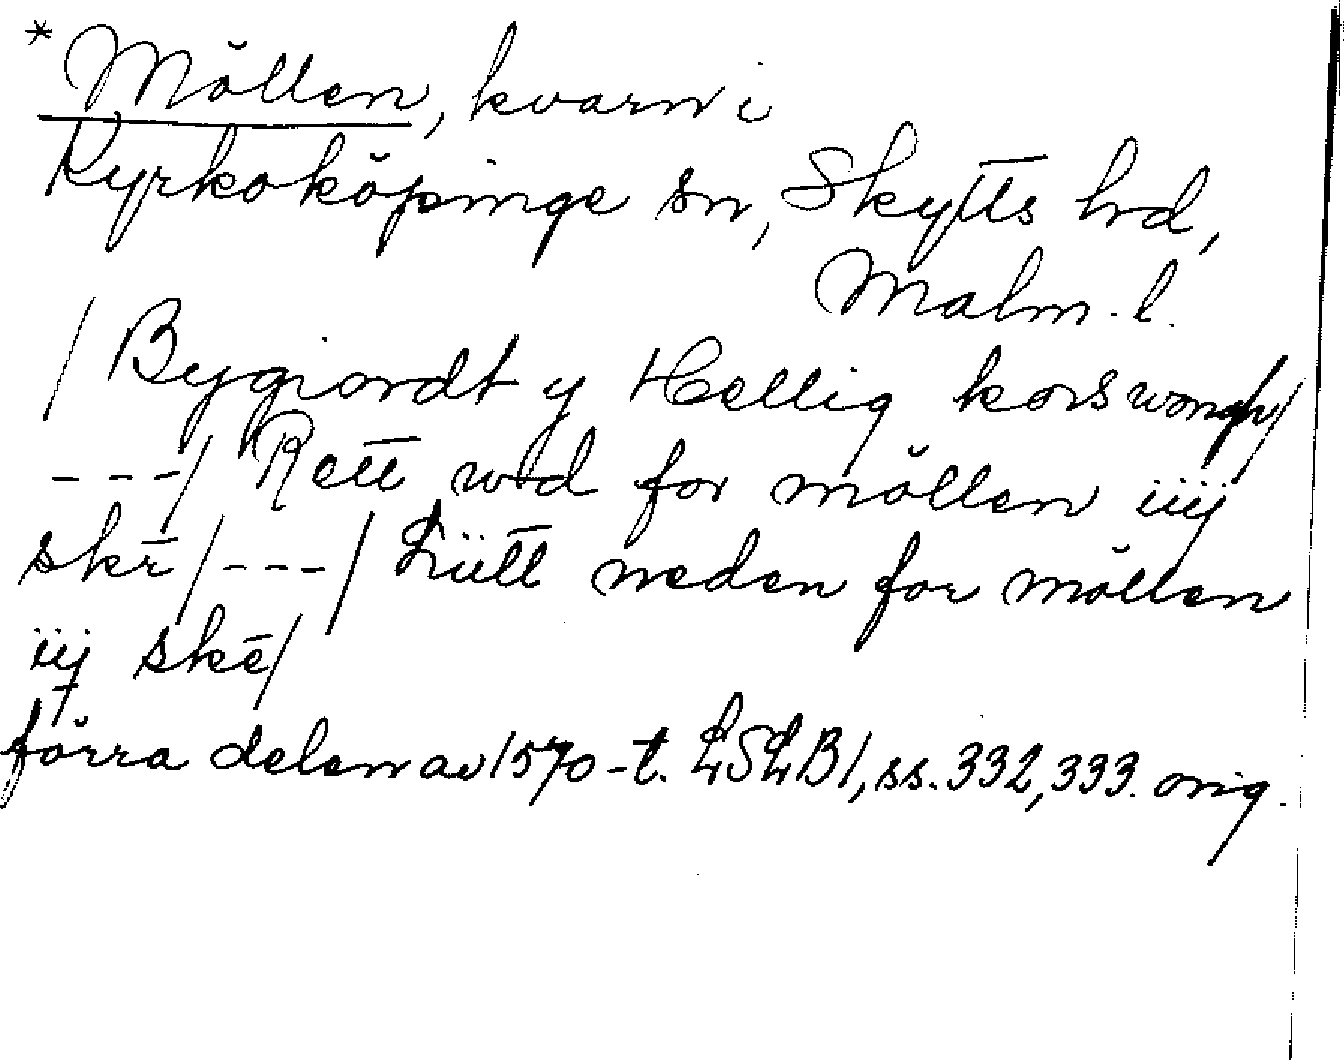 *Möllen, kvarn i
Kyrkoköpinge sn, Skytts hd,
Malm. l.
/ Bygiordt y Hellig kors wongh/
---/ Rett wed for möllen iiij
skr̄/---/ Lütt neden for möllen
iij skē/
förra delen av 1570-t. LSLB1, ss. 332, 333. orig.